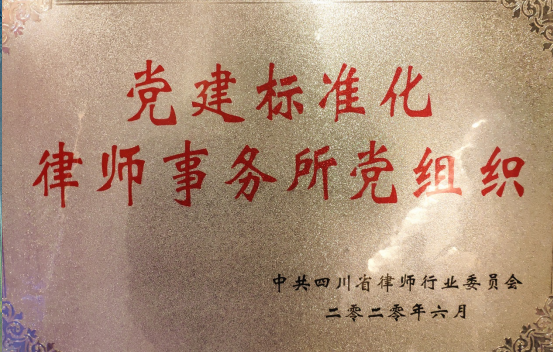 党建标准化
律师事务所党组织
中共四川省律师行业委员会
二零二零年六月